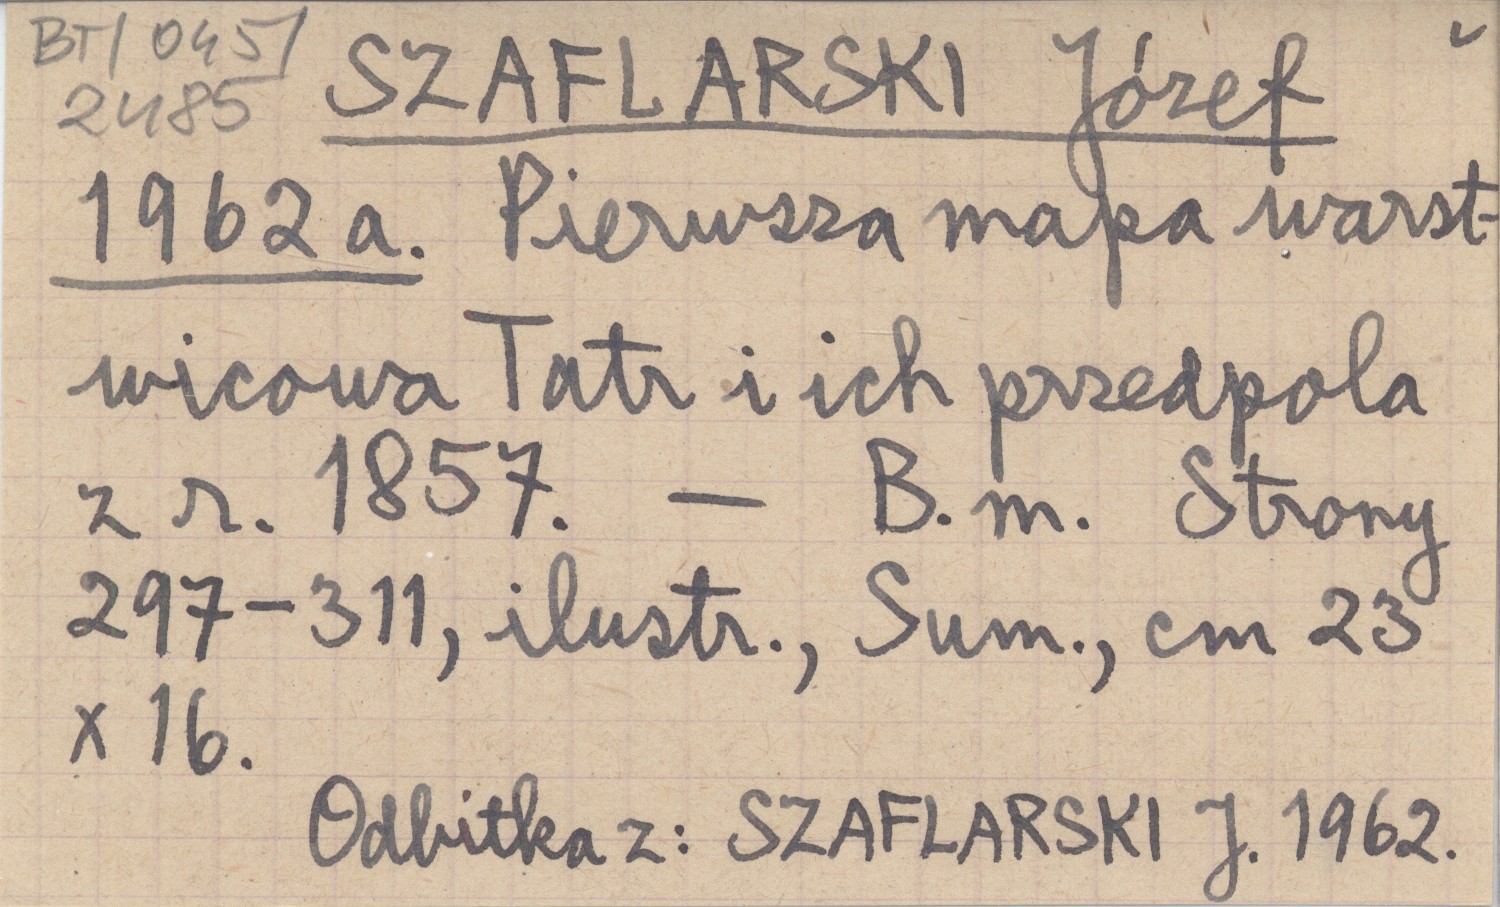 BT/045/
2485
SZAFLARSKI Józef
1962a. Pierwsza mapa warst-
wicowa Tatr i ich przedpola
z r. 1857. — B.m. Strony
297-311, ilustr., Sum., cm 23
x 16.
Odbitka z: SZAFLARSKI J. 1962.